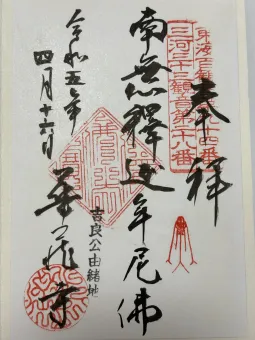 三河三十三観音第二十八番
奉拝
南無釋迦牟尼佛
吉良公由緒地
華蔵寺
令和五年
四月十六日